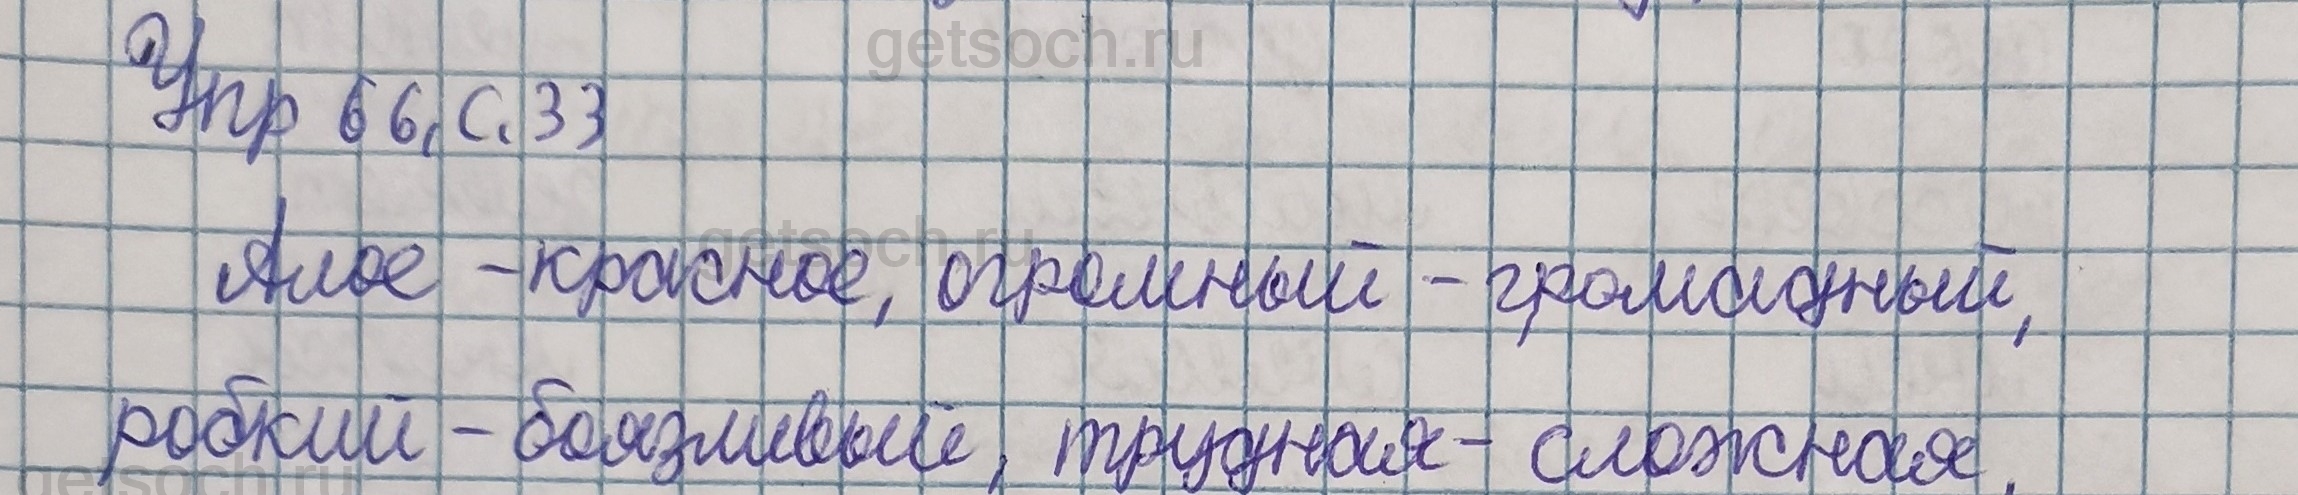 getsoch.ru
Упр 66, с. 33
getsoch.ru
Алое - красное, огромный - громадный,
робкий - боязливый, трудная - сложная.
getsoch.ru